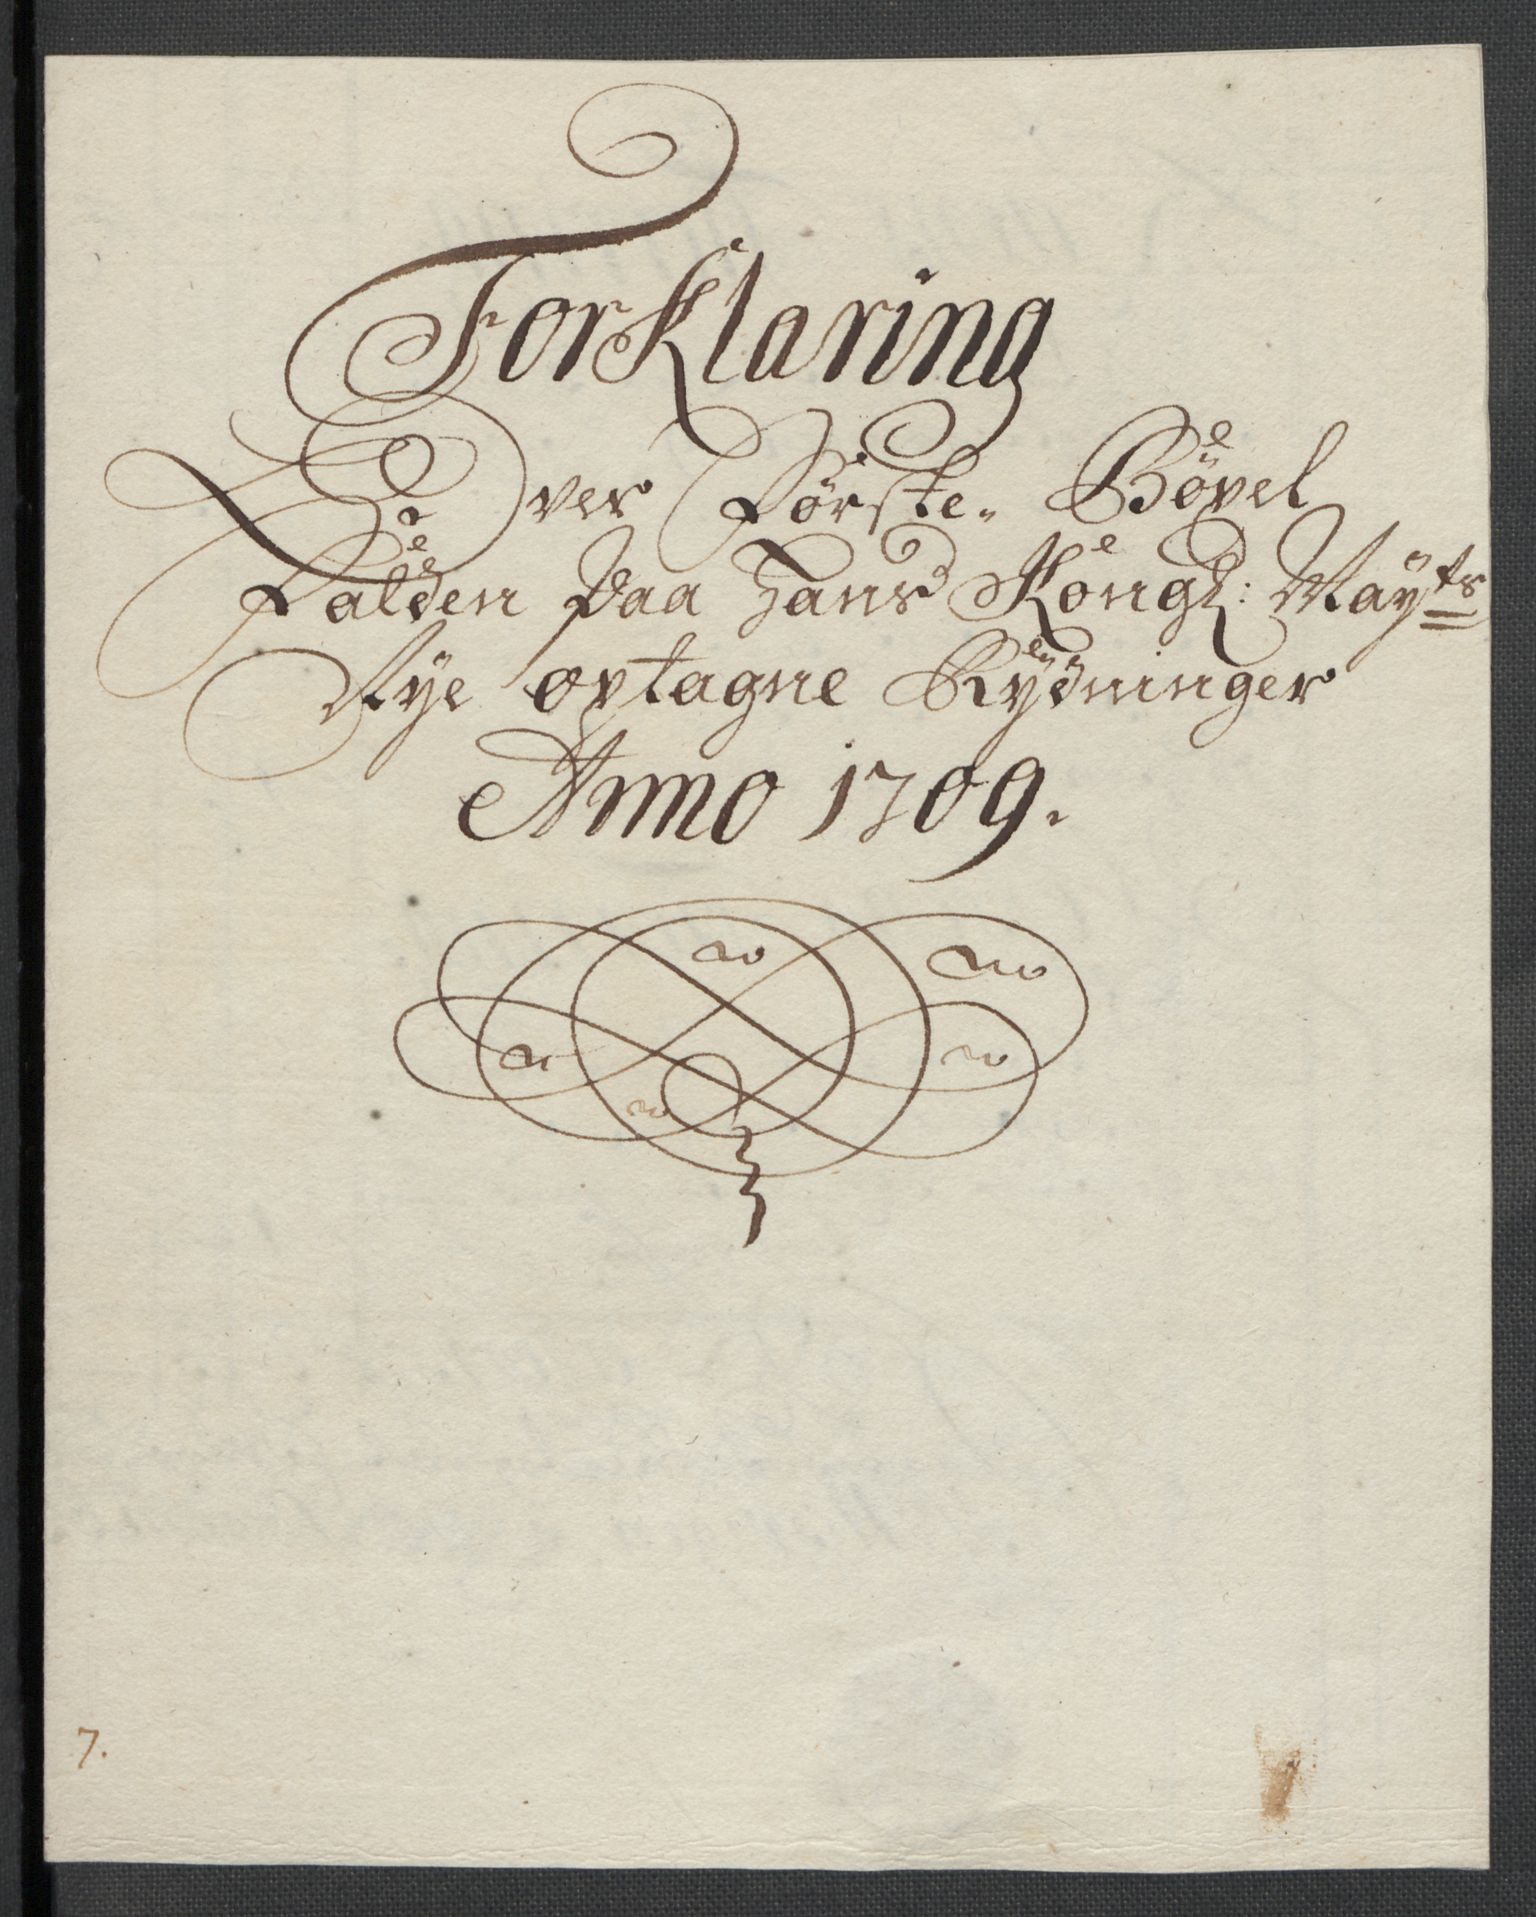 Forklaring
Over Første Böxel
Falden paa Hans Kongl: Mayts
Nye optagne Rydninger
Anno 1709.
7.